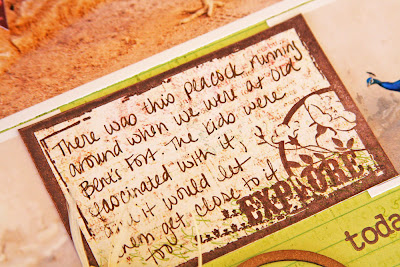 There was this peacock running
around when we were at Old
Bent's Fort. The kids were
fascinated with it,
it would let
get close to it
too
EXPLORE
toda